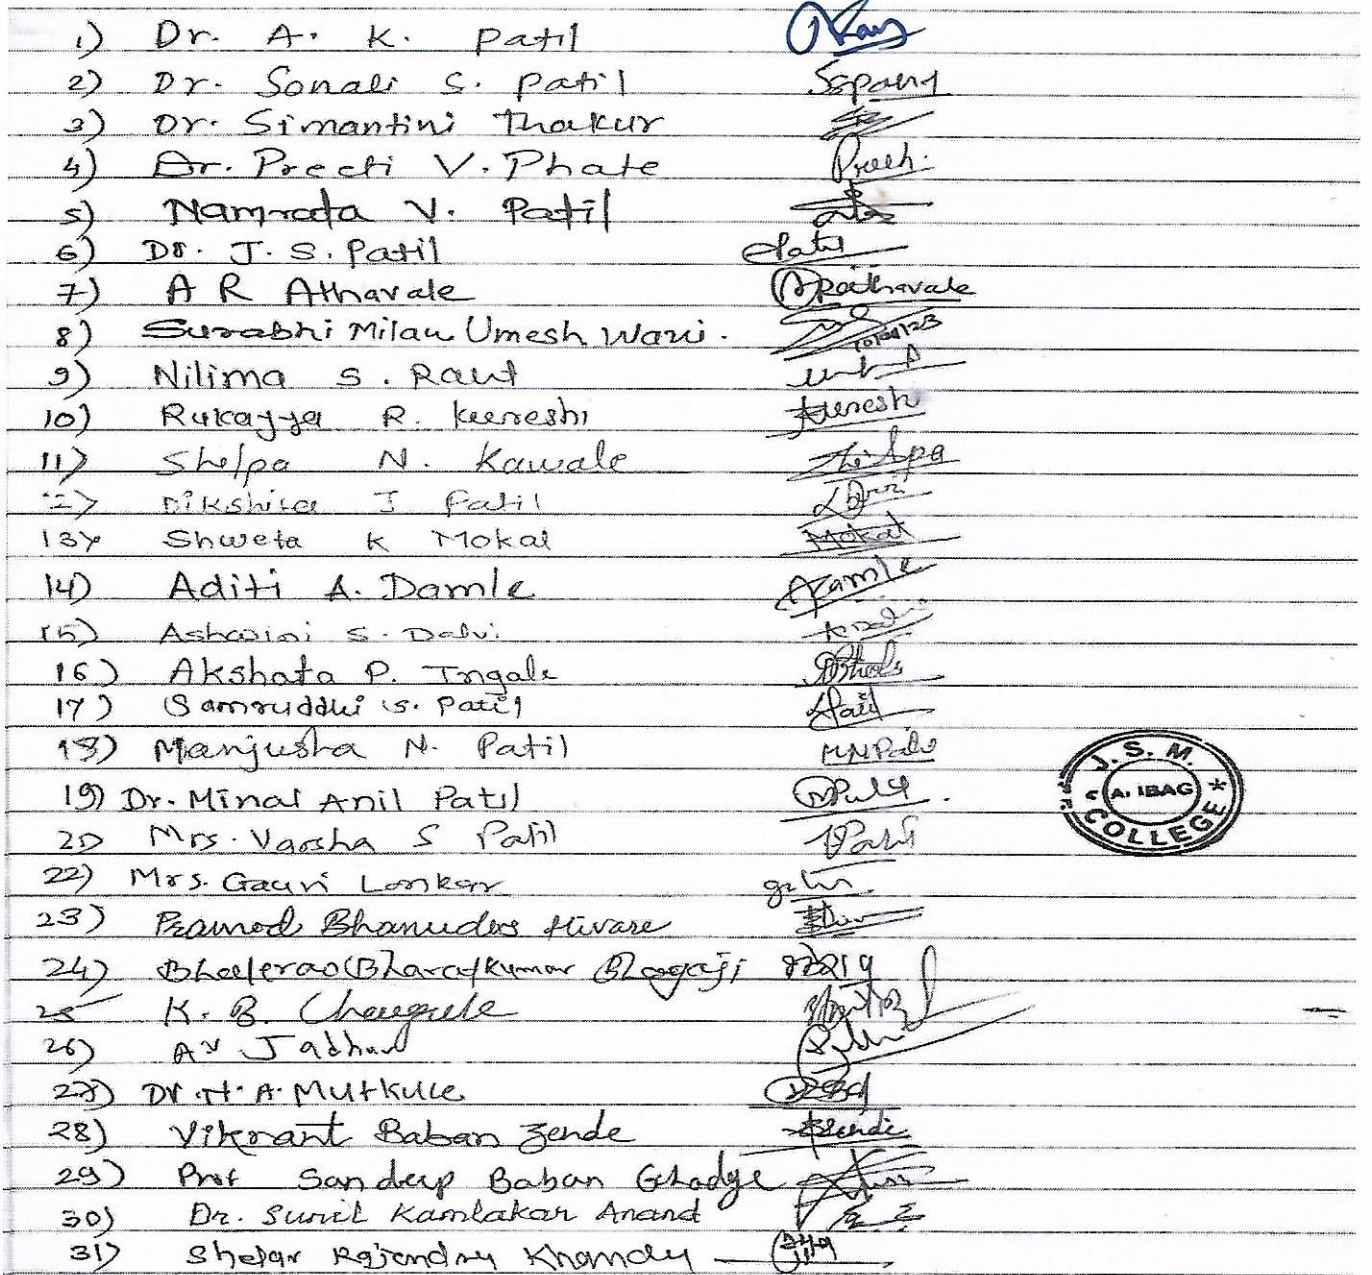 1) Dr. A. K. Patil
2) Dr. Sonali S. Patil SSpatil
3) Dr. Simantini Thakur
4) Dr. Preeti V. Phate Preeti
5) Namrata V. Patil
6) Dr. J. S. Patil
7) A R Athavale ARAthavale
8) Surabhi Milan Umesh Wani.
9) Nilima S. Raut
10) Rukayya R. Kureshi Kureshi
11) Shilpa N. Kawale Shilpa
12) Dikshita J Patil
13) Shweta K Mokal Mokal
14) Aditi A. Damle ADamle
15) Ashwini S. Dalvi
16) Akshata P. Ingale
17) Samruddhi S. Patil
18) Manjusha N. Patil MNPatil
J. S. M. COLLEGE
A. IBAG
19) Dr. Minal Anil Patil
20) Mrs. Varsha S Patil VPatil
22) Mrs. Gauri Lonkar
23) Pramod Bhanudas Hivare
24) Bhalerao (Bharatkumar Bhagaji
25 K. B. Chougule
26) A V Jadhav
27) Dr. H. A. Mutkule
28) Vikrant Baban Zende Zende
29) Prof Sandeep Baban Ghadge
30) Dr. Sunil Kamlakar Anand
31) Shelar Rajendra Khandu